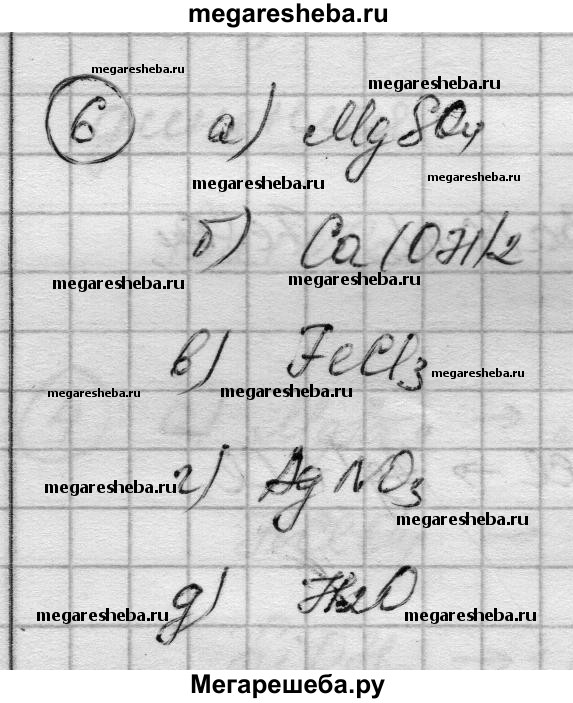 megaresheba.ru
megaresheba.ru
megaresheba.ru
6 а) MgSO4
megaresheba.ru
megaresheba.ru
б) Ca(OH)2
megaresheba.ru
megaresheba.ru
в) FeCl3
megaresheba.ru
megaresheba.ru
megaresheba.ru
г) AgNO3
megaresheba.ru
megaresheba.ru
д) H2O
megaresheba.ru
megaresheba.ru
Мегарешеба.ру